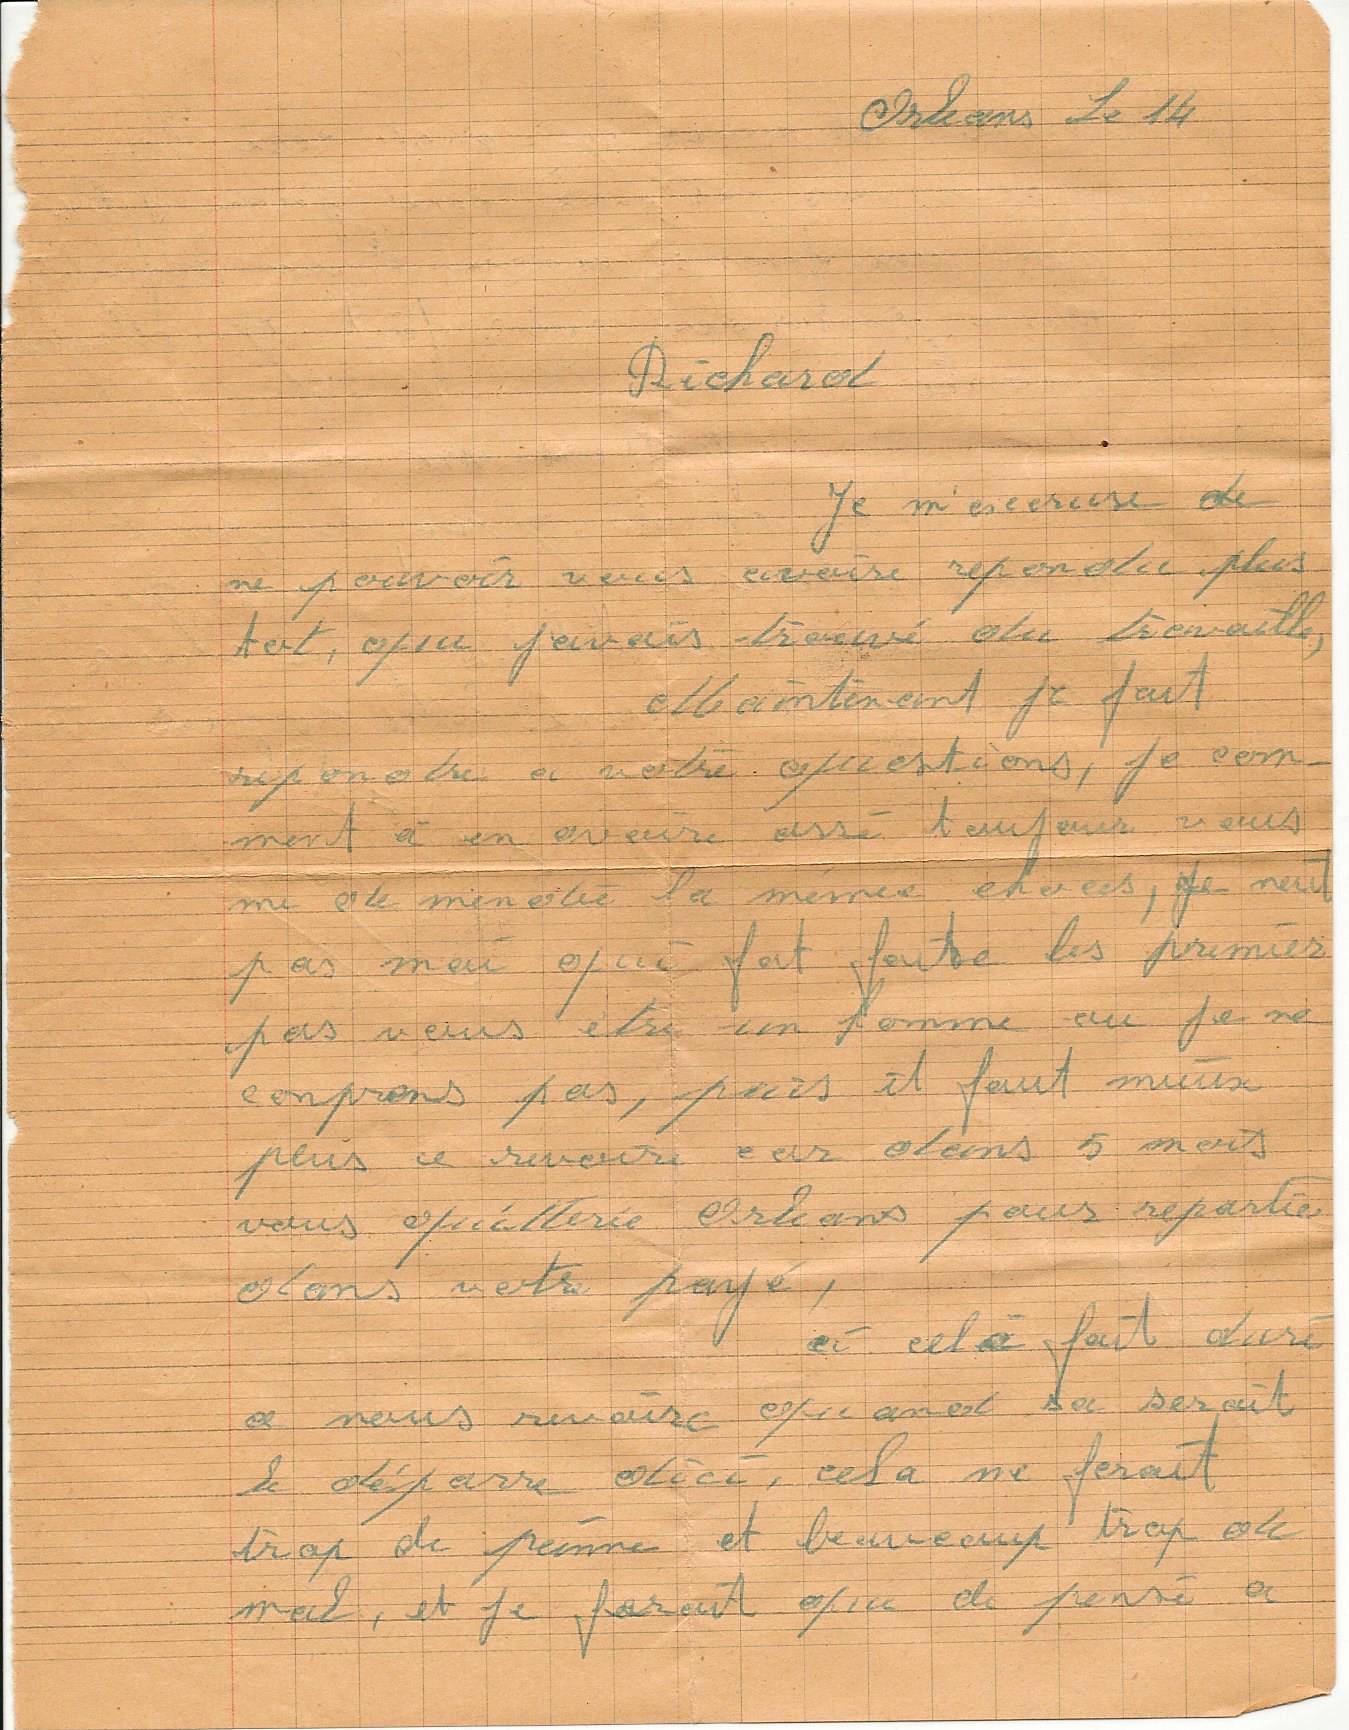 Orleans Le 14
Richard
Je m'excuse de
ne pouvoir vous avoire repondu plus
tot, qu javais trouvé du travaille,
Maintenant je fait
repondre a votre questions, je com-
ment à en avoire assé toujour vous
me de mendie la mémee choces, je neut
pas moi qui fat faitre les premier
pas vous etre un homme ou je ne
conprens pas, puis il faut mieux
plus ce revoire car dans 5 mois
vous quitterie Orleans pour repartie
dans votre payé,
ci celà fait duré
a nous revoire quand sa serait
le déparre dici, cela me ferait
trop de peinne et beaucoup trop de
mal, et je farait que de pensé a